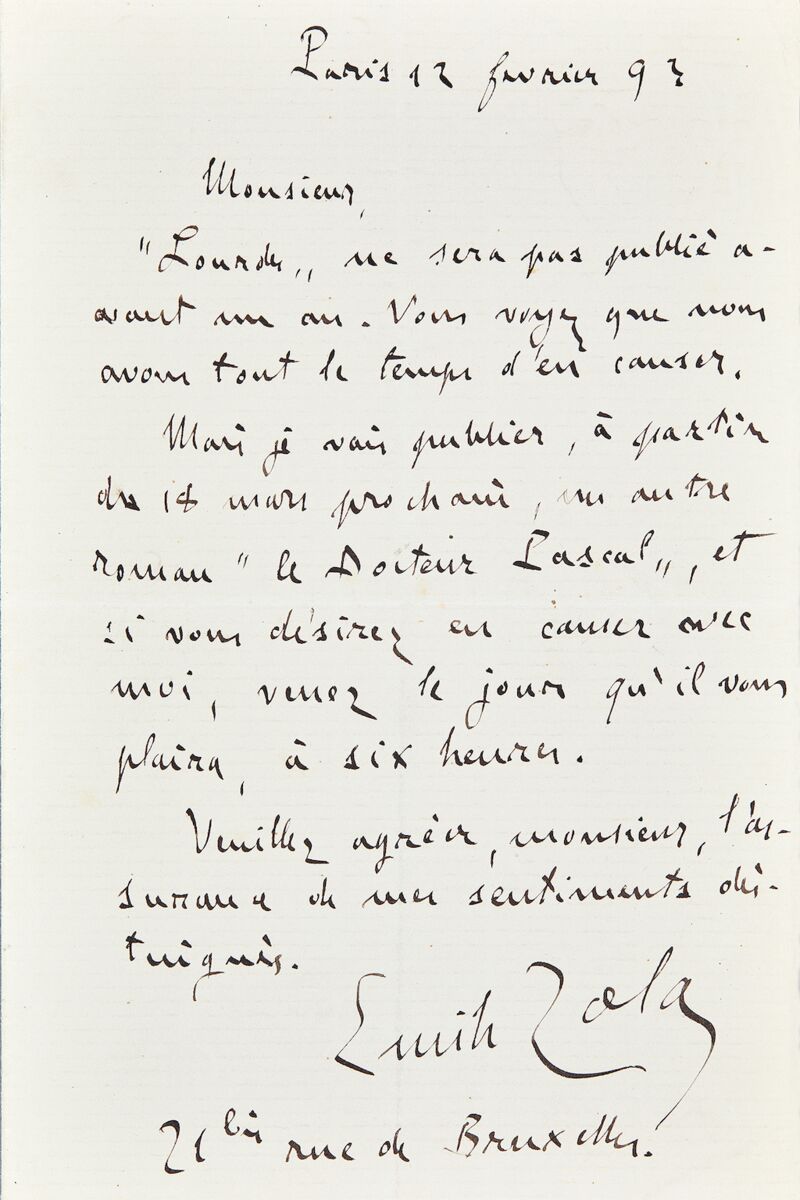 Paris 12 février 93
Monsieur,
"Lourdes„ ne sera pas publié a-
avant un an. Vous voyez que nous
avons tout le temps d'en causer.
Mais je vais publier, à partir
du 18 mars prochain, un autre
roman "le Docteur Pascal„, et
si vous désirez en causer avec
moi, venez le jour qu'il vous
plaira, à six heures.
Veuillez agréer, monsieur, l'as-
surance de mes sentiments dis-
tingués.
Emile Zola
21 bis rue de Bruxelles.